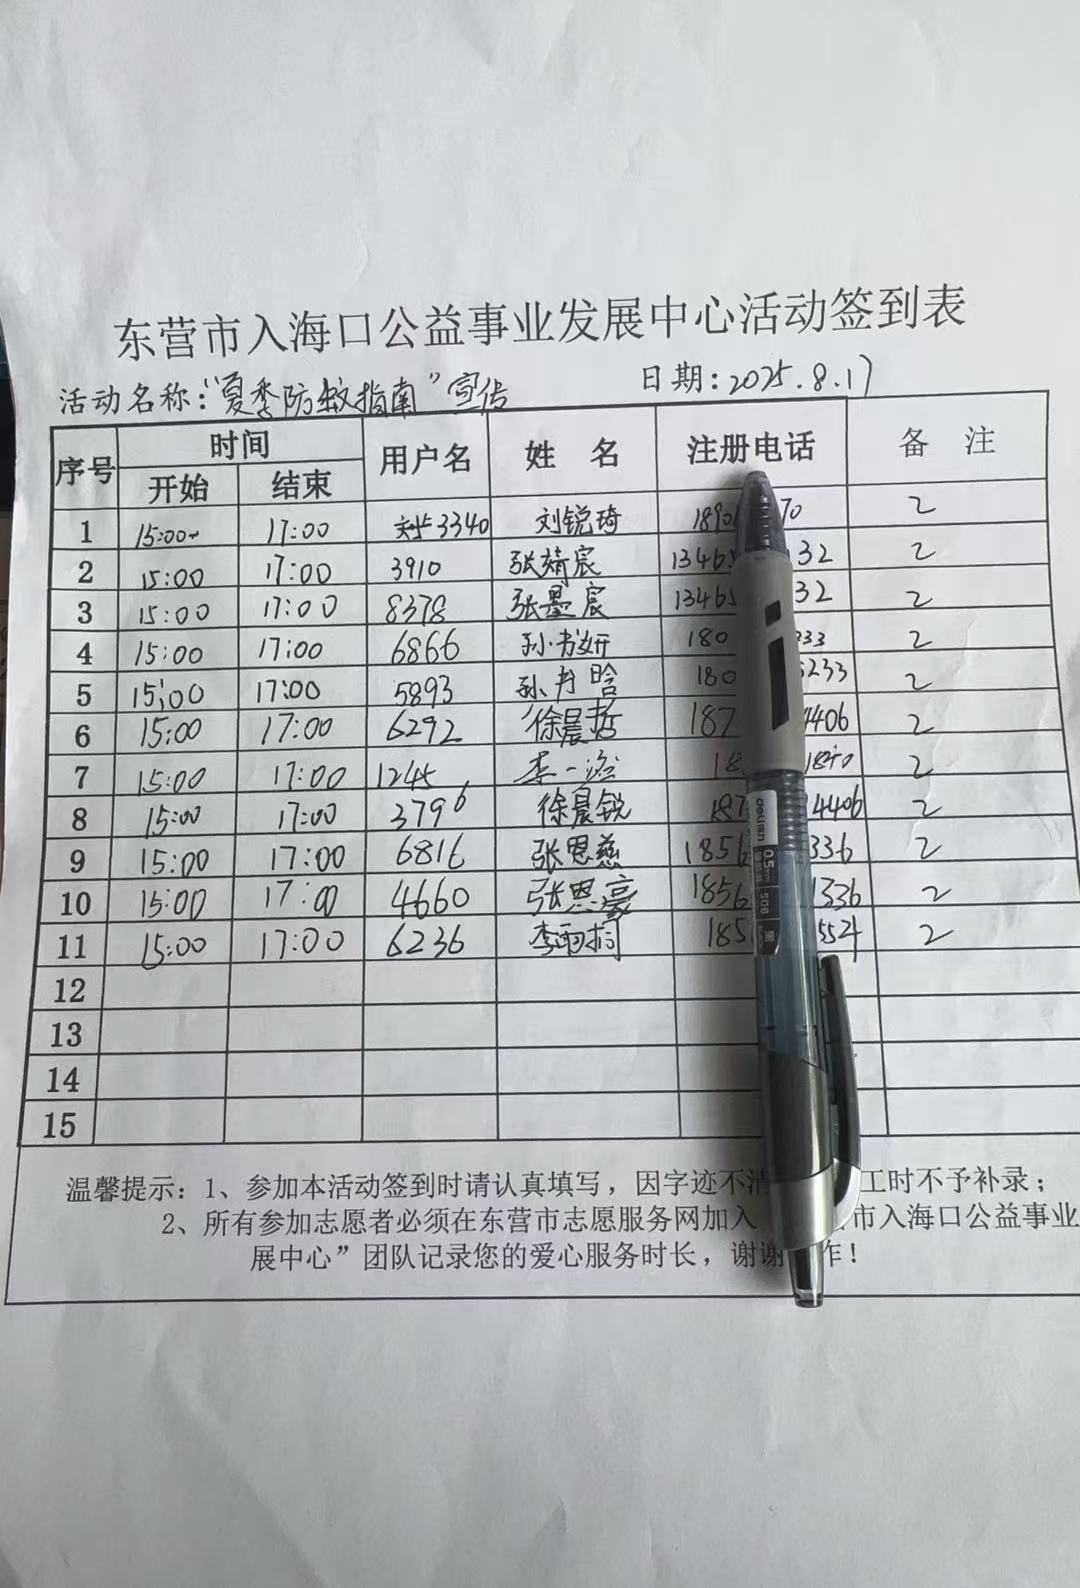 东营市入海口公益事业发展中心活动签到表
活动名称:“夏季防蚊指南”宣传 日期:2025.8.17
序号 时间 用户名 姓 名 注册电话 备 注
开始 结束
1 15:00 17:00 3340 刘锐琦 1890 70 2
2 15:00 17:00 3910 张婧宸 13465 32 2
3 15:00 17:00 8378 张墨宸 13465 32 2
4 15:00 17:00 6866 孙书妍 180 33 2
5 15:00 17:00 5893 孙书晗 180 233 2
6 15:00 17:00 6292 徐晨哲 187 4406 2
7 15:00 17:00 1245 李一 18 2
8 15:00 17:00 3796 徐晨锐 187 4406 2
9 15:00 17:00 6816 张恩慈 1856 336 2
10 15:00 17:00 4660 张恩豪 1856 1336 2
11 15:00 17:00 6236 李雨桐 185 5524 2
12
13
14
15
deli 0.5 S08
温馨提示:1、参加本活动签到时请认真填写,因字迹不清 工时不予补录;
2、所有参加志愿者必须在东营市志愿服务网加入 市入海口公益事业
展中心”团队记录您的爱心服务时长,谢谢 作!